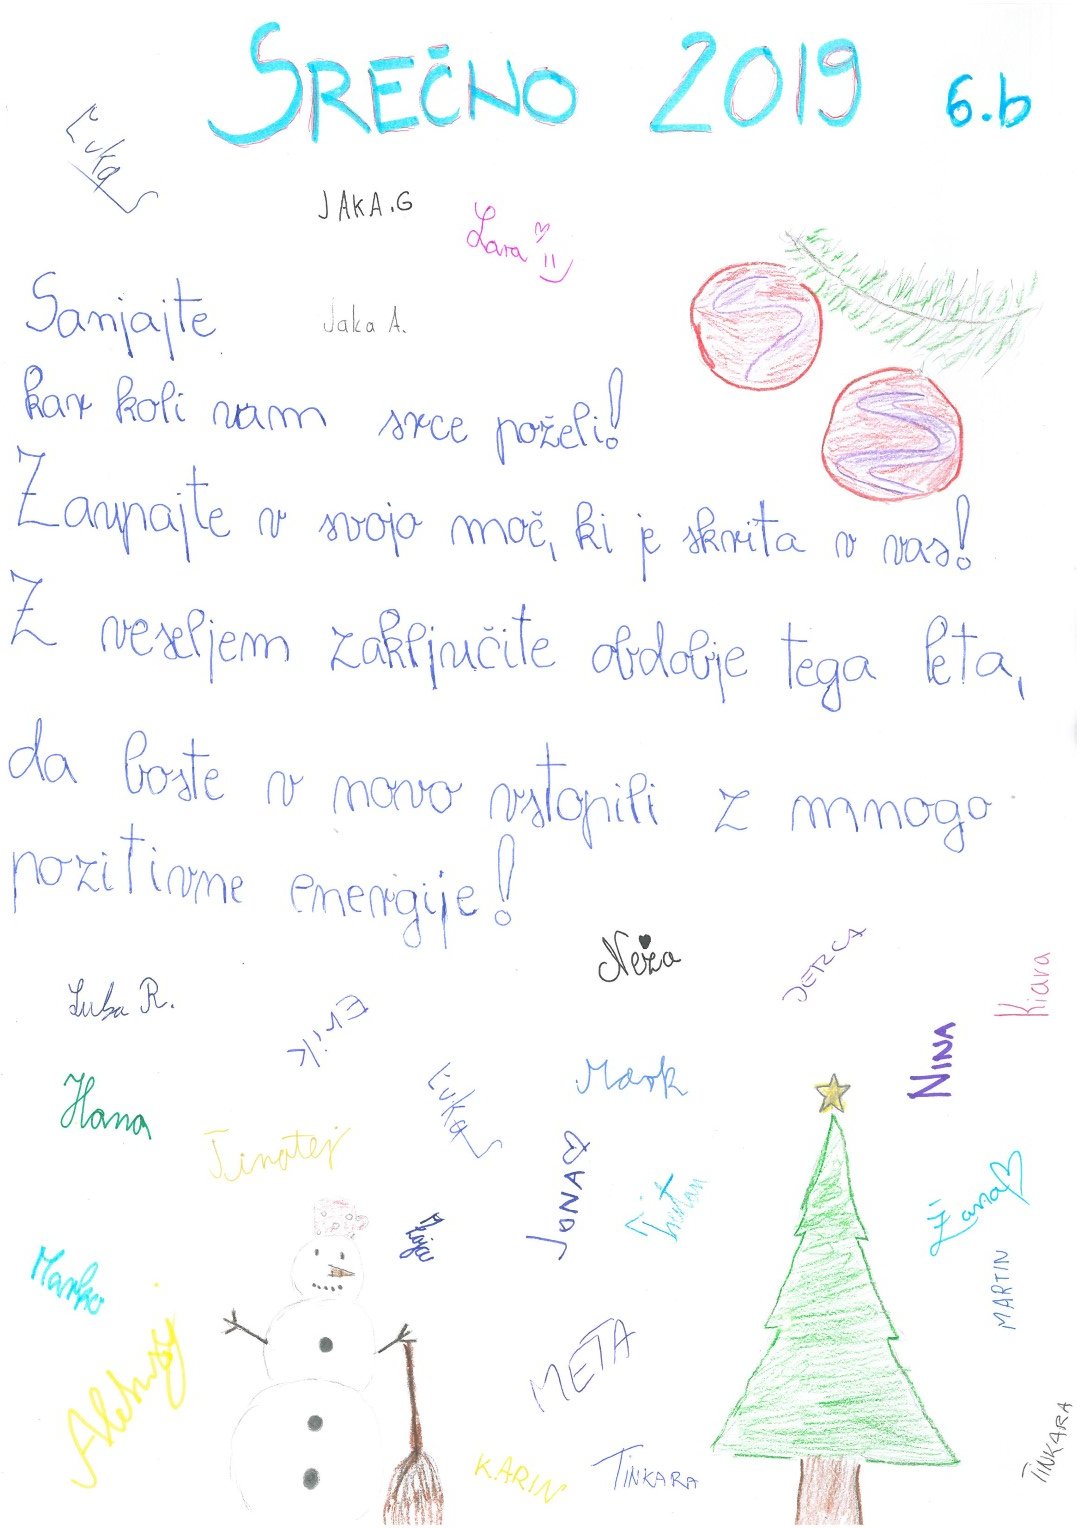 SREČNO 2019 6.b
Luka
JAKA.G
Lara
Sanjajte
Jaka A.
kar koli vam srce poželi!
Zaupajte v svojo moč, ki je skrita v vas!
Z veseljem zaključite obdobje tega leta,
da boste v novo vstopili z mnogo
pozitivne energije!
Neža
JERCA
Kiara
Luka R.
Erik
NINA
Mark
Hana
Luka
Tinotej
JONA
Žana
Marko
MARTIN
META
KARIN
TINKARA
TINKARA